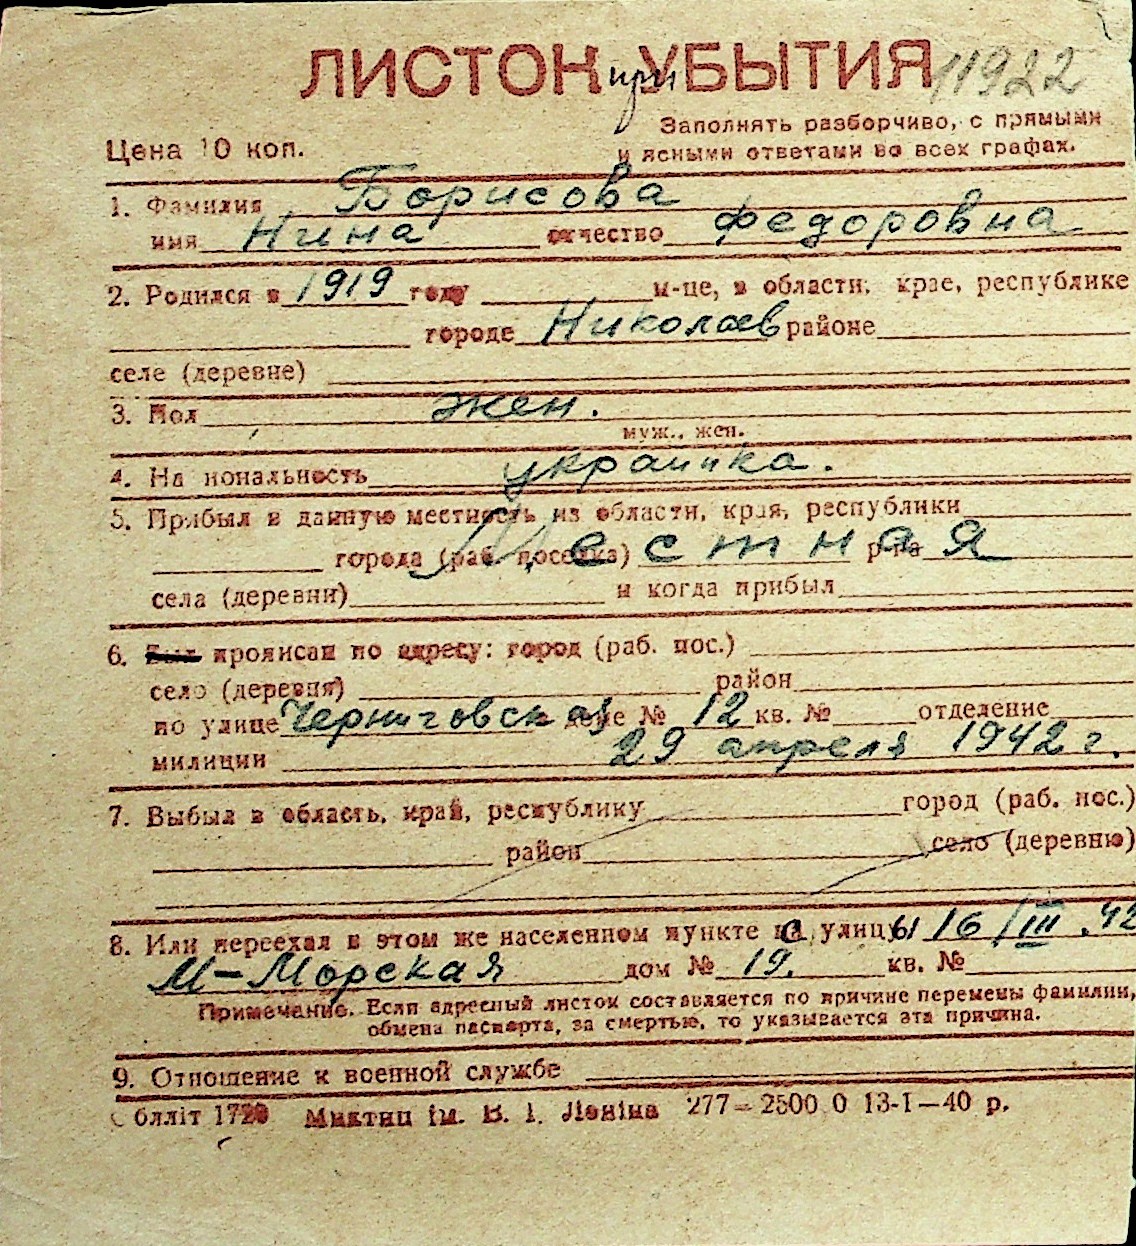 ЛИСТОК при УБЫТИЯ 11922
Заполнять разборчиво, с прямыми
Цена 10 коп. и ясными ответами во всех графах.
1. Фамилия Борисова
имя Нина отчество Федоровна
2. Родился в 1919 году м-це, в области, крае, республике
городе Николаев районе
селе (деревне)
3. Пол жен.
муж., жен.
4. Национальность украинка.
5. Прибыл в данную местность из области, края, республики
города (раб. поселка) Местная р-на
села (деревни) и когда прибыл
6. Был прописан по адресу: город (раб. пос.)
село (деревня) район
по улице Черниговская доме № 12 кв. № отделение
милиции 29 апреля 1942 г.
7. Выбыл в область, край, республику город (раб. пос.)
район село (деревню)
8. Или переехал в этом же населенном пункте с улицы 16/III.42
М-Морская дом № 19. кв. №
Примечание. Если адресный листок составляется по причине перемены фамилии,
обмена паспорта, за смертью, то указывается эта причина.
9. Отношение к военной службе
Облліт 1720 ім. В. І. Леніна 277—2500 0 13-І—40 р.